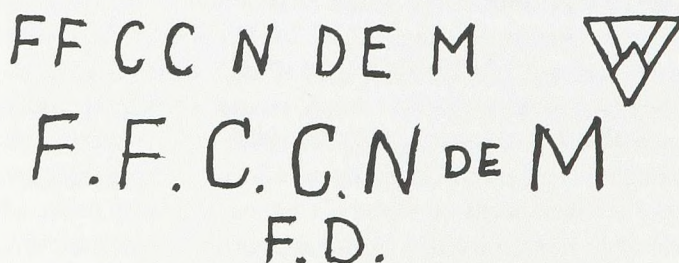 FF CC N DE M
F.F.C.C.N DE M
F.D.